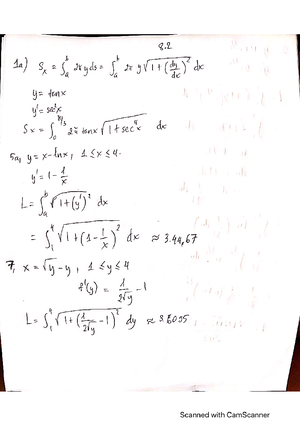 8.2
1a) Sx = ∫_a^b 2π y ds = ∫_a^b 2π y √(1 + (dy/dx)²) dx
y = tanx
y' = sec²x
Sx = ∫_0^{π/3} 2π tanx √(1 + sec⁴x) dx
5a, y = x - lnx, 1 ≤ x ≤ 4.
y' = 1 - 1/x
L = ∫_a^b √(1 + (y')²) dx
= ∫_1^4 √(1 + (1 - 1/x)²) dx ≈ 3.4467
7, x = √y - y, 1 ≤ y ≤ 4
f'(y) = 1/(2√y) - 1
L = ∫_1^4 √(1 + (1/(2√y) - 1)²) dy ≈ 3.6095
Scanned with CamScanner